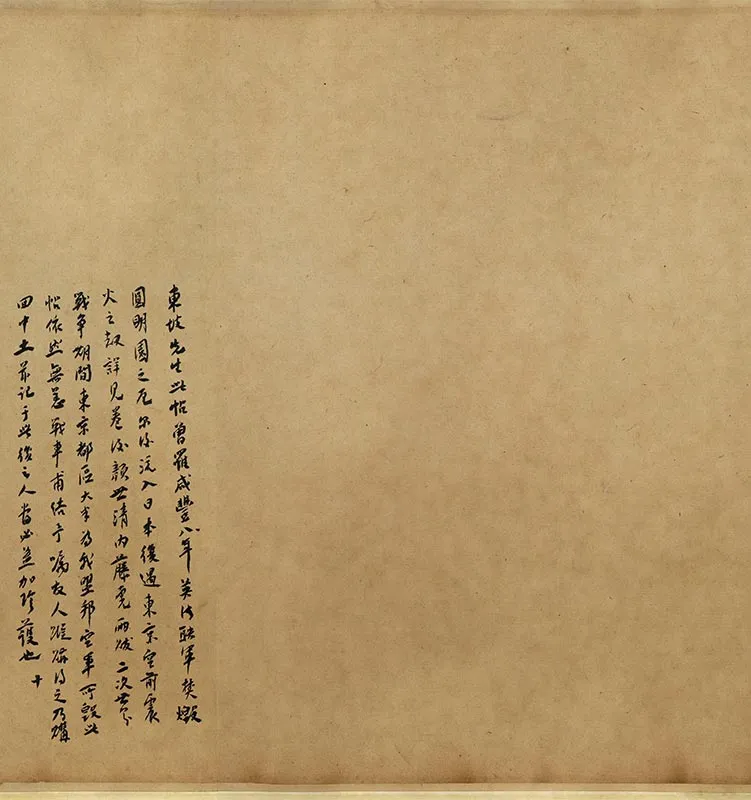 東坡先生此帖曾罹咸豐八年英法聯軍焚燬
圓明園之厄尔後流入日本復遇東京空前震
火之劫詳見卷後顏世清內藤虎兩跋二次世界
戰爭期間東京都區大半為我盟邦空軍所毀此
帖依然無恙戰事甫結予囑友人蹤跡得之乃購
回中土並記于此後之人當必益加珍護也 十